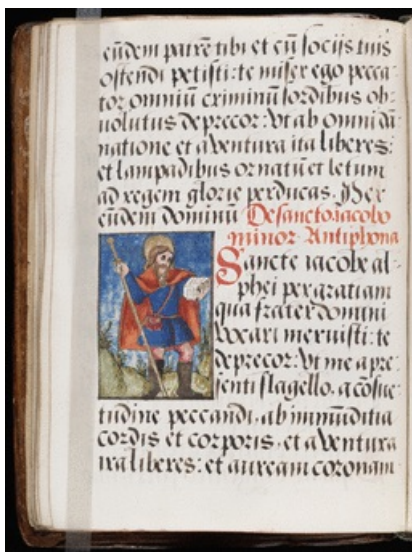 eūdem patrē tibi et cū socijs tuis
ostendi petisti: te miser ego pecca
tor omniū criminū sordibus ob
uolutus deprecor: vt ab omni dā
natione et aventura ira liberes:
et lampadibus ornatū et letum
ad regem glorie perducas. Per
eūdem dominū De sancto iacobo
minor Antiphona
Sancte iacobe al
phei per gratiam
qua frater domini
vocari meruisti: te
deprecor: vt me a pre
senti flagello. a cōsue
tudine peccandi. ab inmūditia
cordis et corporis. et a ventura
ira liberes: et auream coronam